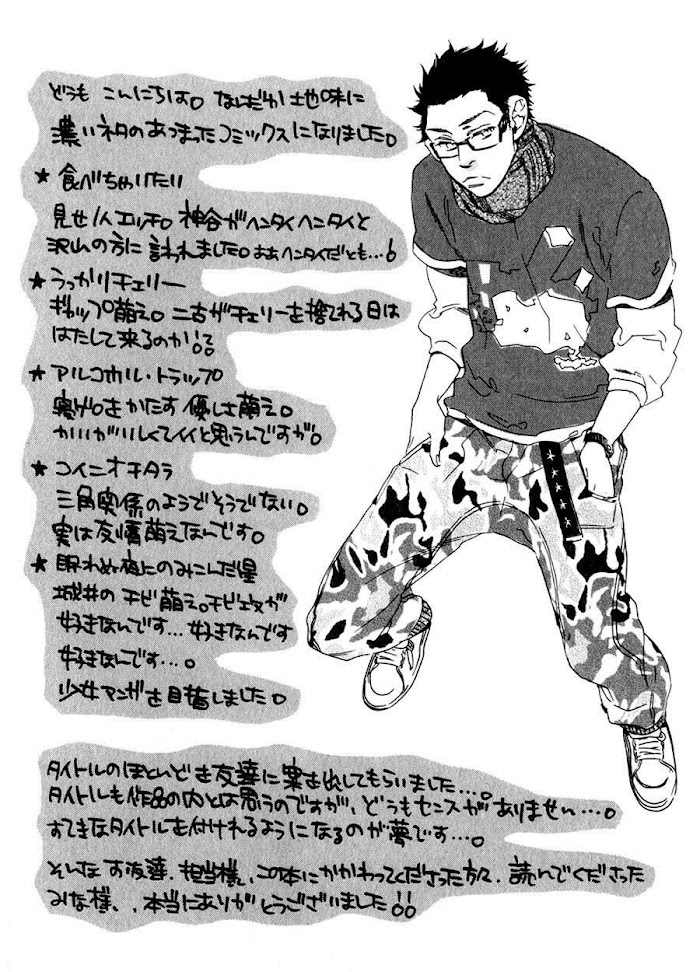 どうも こんにちは。なんだか地味に
濃いネタのあつまったコミックスになりました。
★ 食べちゃいたい
見せ1人エッチ。神谷がヘンタイヘンタイと
沢山の方に言われました。ああヘンタイだとも…!
★ うっかりチェリー
ギャップ萌え。二古がチェリーを捨てれる日は
はたして来るのか!?
★ アルコホル・トラップ
寝ゲロをかたす優しさ萌え。
かいがいしくてイイと思うんですが。
★ コイニオチタラ
三角関係のようでそうでない。
実は友情萌えなんです。
★ 眠れぬ夜にのみこんだ星
城井のチビ萌え。チビ攻が
好きなんです…好きなんです
好きなんです…。
少女マンガを目指しました。
タイトルのほとんどを友達に案を出してもらいました…。
タイトルも作品の内とは思うのですが、どうもセンスがありません…。
すてきなタイトルを付けれるようになるのが夢です…。
そんなす友達、担当様、この本にかかわってくださった方々、読んでくださった
みな様、本当にありがとうございました!!